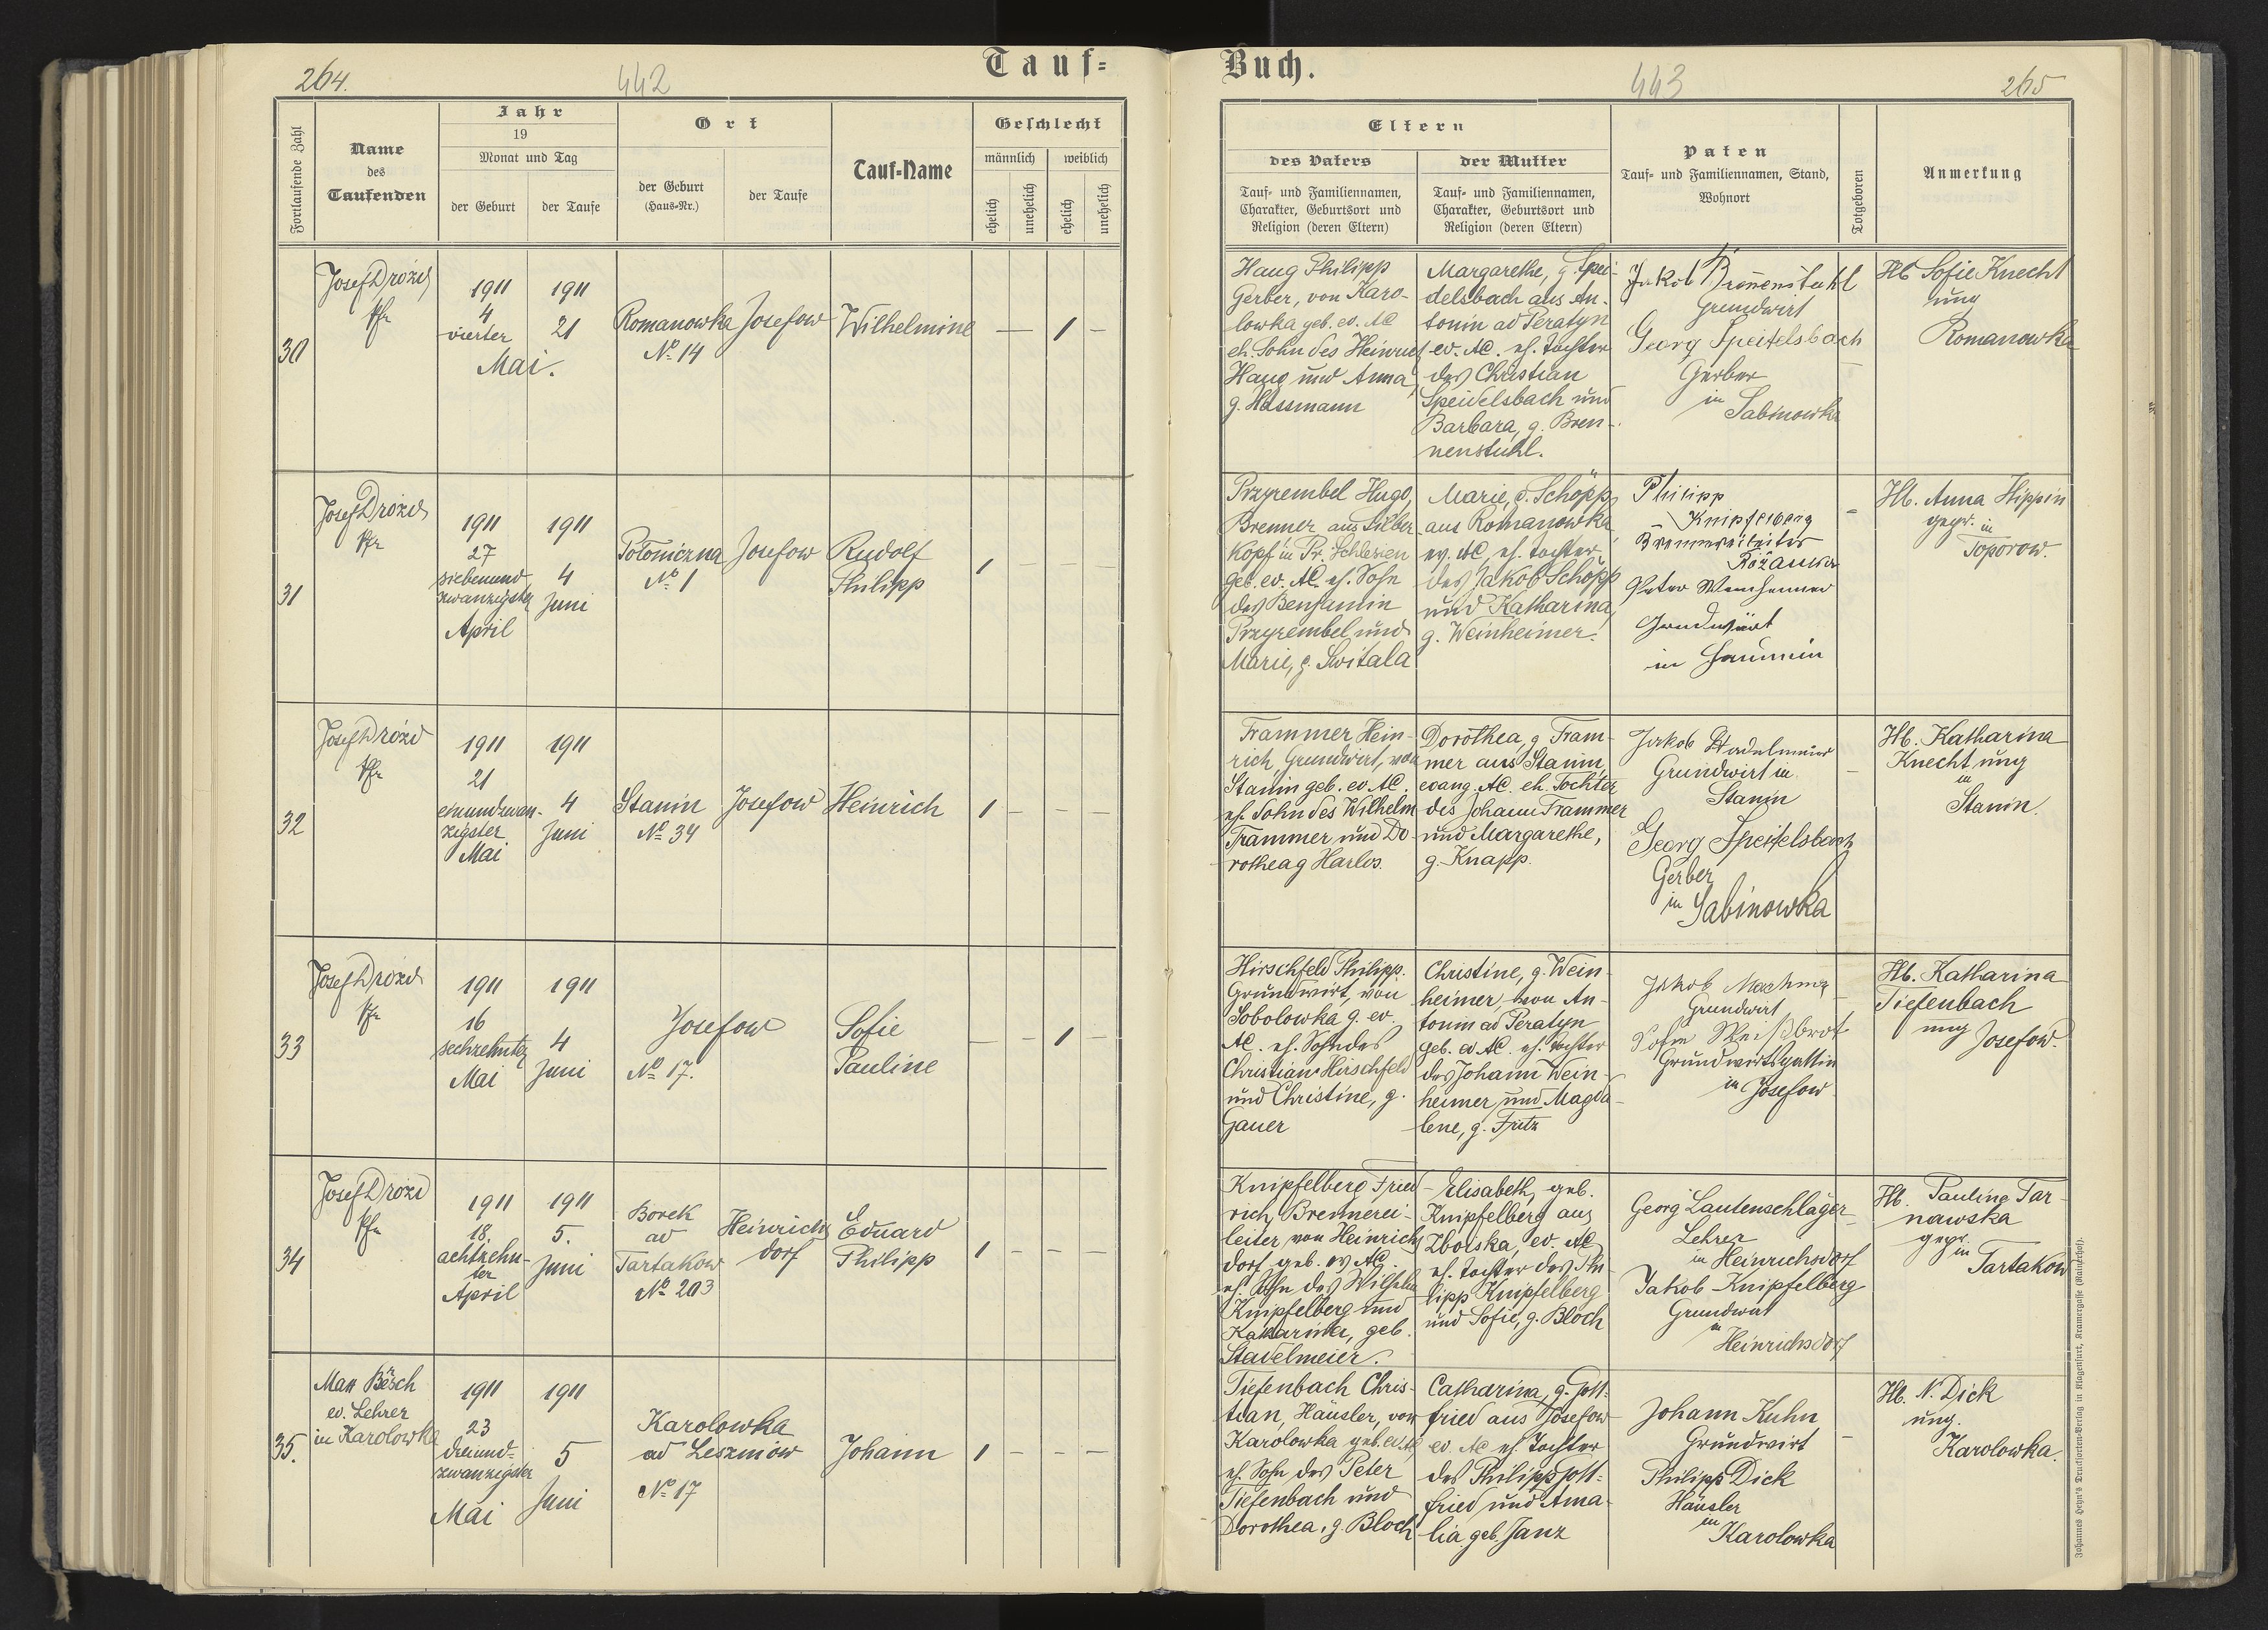 264.
442
Tauf=
Fortlaufende Zahl
Name
des
Taufenden
Jahr
19
Monat und Tag
der Geburt
der Taufe
Ort
der Geburt
(Haus-Nr.)
der Taufe
Tauf=Name
Geschlecht
männlich
weiblich
ehelich
unehelich
ehelich
unehelich
30
Josef Drozd
Pfr
1911
4
vierter
1911
21
Mai.
Romanowka
No. 14
Josefow
Wilhelmine
— 1 —
31
Josef Drozd
Pfr
1911
27
siebenund
zwanzigster
April
1911
4
Juni
Połoniczna
No. 1
Josefow
Rudolf
Philipp
1 — — —
32
Josef Drozd
Pfr
1911
21
einundzwan-
zigster
Mai
1911
4
Juni
Stanin
No. 34
Josefow
Heinrich
1 — —
33
Josef Drozd
Pfr
1911
16
sechzehnter
Mai
1911
4
Juni
Josefow
No. 17.
Sofie
Pauline
— — 1 —
34
Josef Drozd
Pfr
1911
18.
achtzehn-
ter
April
1911
5.
Juni
Borek
ad
Tartakow
No. 203
Heinrichs
dorf
Eduard
Philipp
1 — — —
35.
Max Bösch
ev. Lehrer
in Karolowka
1911
23
dreiund=
zwanzigster
Mai
1911
5
Juni
Karolowka
ad Leszniow
No. 17
Johann
1 — — —
Buch.
443
265
Eltern
des Vaters
Tauf- und Familiennamen,
Charakter, Geburtsort und
Religion (deren Eltern)
der Mutter
Tauf- und Familiennamen,
Charakter, Geburtsort und
Religion (deren Eltern)
Paten
Tauf- und Familiennamen, Stand,
Wohnort
Totgeboren
Anmerkung
Haug Philipp
Gerber, von Karo-
lowka geb. ev. AC
eh. Sohn des Heinrich
Haug und Anna,
g. Hassmann
Margarethe, g. Spei-
delsbach aus An-
tonin ad Peratyn
ev. AC. eh. Tochter
des Christian
Speidelsbach und
Barbara, g. Bren-
nenstuhl.
Jakob Bronenstuhl
Grundwirt
Georg Speitelsbach
Gerber
in
Sabinowka
—
Hb Sofie Knecht
ung
Romanowka
Przyrembel Hugo,
Brenner aus Silber
kopf in Pr. Schlesien
geb. ev. AC. eh. Sohn
des Benjamin
Przyrembel und
Marie, g. Switala
Marie, g. Schöpp
aus Romanowka
ev. AC, eh. Tochter
des Jakob Schöpp
und Katharina,
g. Weinheimer.
Philipp
Knipfelberg
Brennereileiter
Różanka
Peter Weinheimer
Grundwirt
in
–
Hb. Anna Hippin
gepr. in
Toporow.
Trammer Hein-
rich, Grundwirt, von
Stanin geb. ev. AC.
eh. Sohn des Wilhelm
Trammer und Do-
rothea g Harlos.
Dorothea, g Tram-
mer aus Stanin,
evang. AC. eh. Tochter
des Johann Trammer
und Margarethe,
g. Knapp.
Jakob Stadelmeier
Grundwirt in
Stanin
Georg Speitelsbach
Gerber
in Sabinowka
–
Hb. Katharina
Knecht ung
in
Stanin.
Hirschfeld Philipp.
Grundwirt, von
Sobolowka g. ev.
AC. eh. Sohn des
Christian Hirschfeld
und Christine, g.
Gauer
Christine, g. Wein-
heimer, von An-
tonin ad Peratyn
geb. ev AC. eh. Tochter
des Johann Wein-
heimer und Magda-
lene, g. Fritz
Jakob
Grundwirt
Sofie Weißbrot
Grundwirtsgattin
in Josefow
Hb. Katharina
Tiefenbach
ung Josefow.
Knipfelberg Fried-
rich, Brennerei-
leiter von Heinrichs
dorf geb. ev AC.
eh. Sohn des Wilhelm
Knipfelberg und
Katharina, geb.
Stadelmeier.
Elisabeth, geb.
Knipfelberg aus
Zboiska, ev. AC
eh. Tochter des Phi-
lipp Knipfelberg
und Sofie, g. Bloch
Georg Lautenschläger
Lehrer
in Heinrichsdorf
Jakob Knipfelberg
Grundwirt
in
Heinrichsdorf
Hb. Pauline Tar-
nawska
gepr.
in
Tartakow
Tiefenbach Chris-
tian, Häusler, von
Karolowka geb. ev AC
eh. Sohn des Peter
Tiefenbach und
Dorothea, g. Bloch
Catharina, g. Gott-
fried aus Josefow
ev. AC eh. Tochter
des Philipp Gott=
fried und Ama-
lia geb. Janz
Johann Kuhn
Grundwirt
Philipp Dick
Häusler
in
Karolowka
–
Hb. N. Dick
ung.
Karolowka.
Johannes Heyn's Drucksorten-Verlag in Klagenfurt, Kramergasse (Rainerhof).